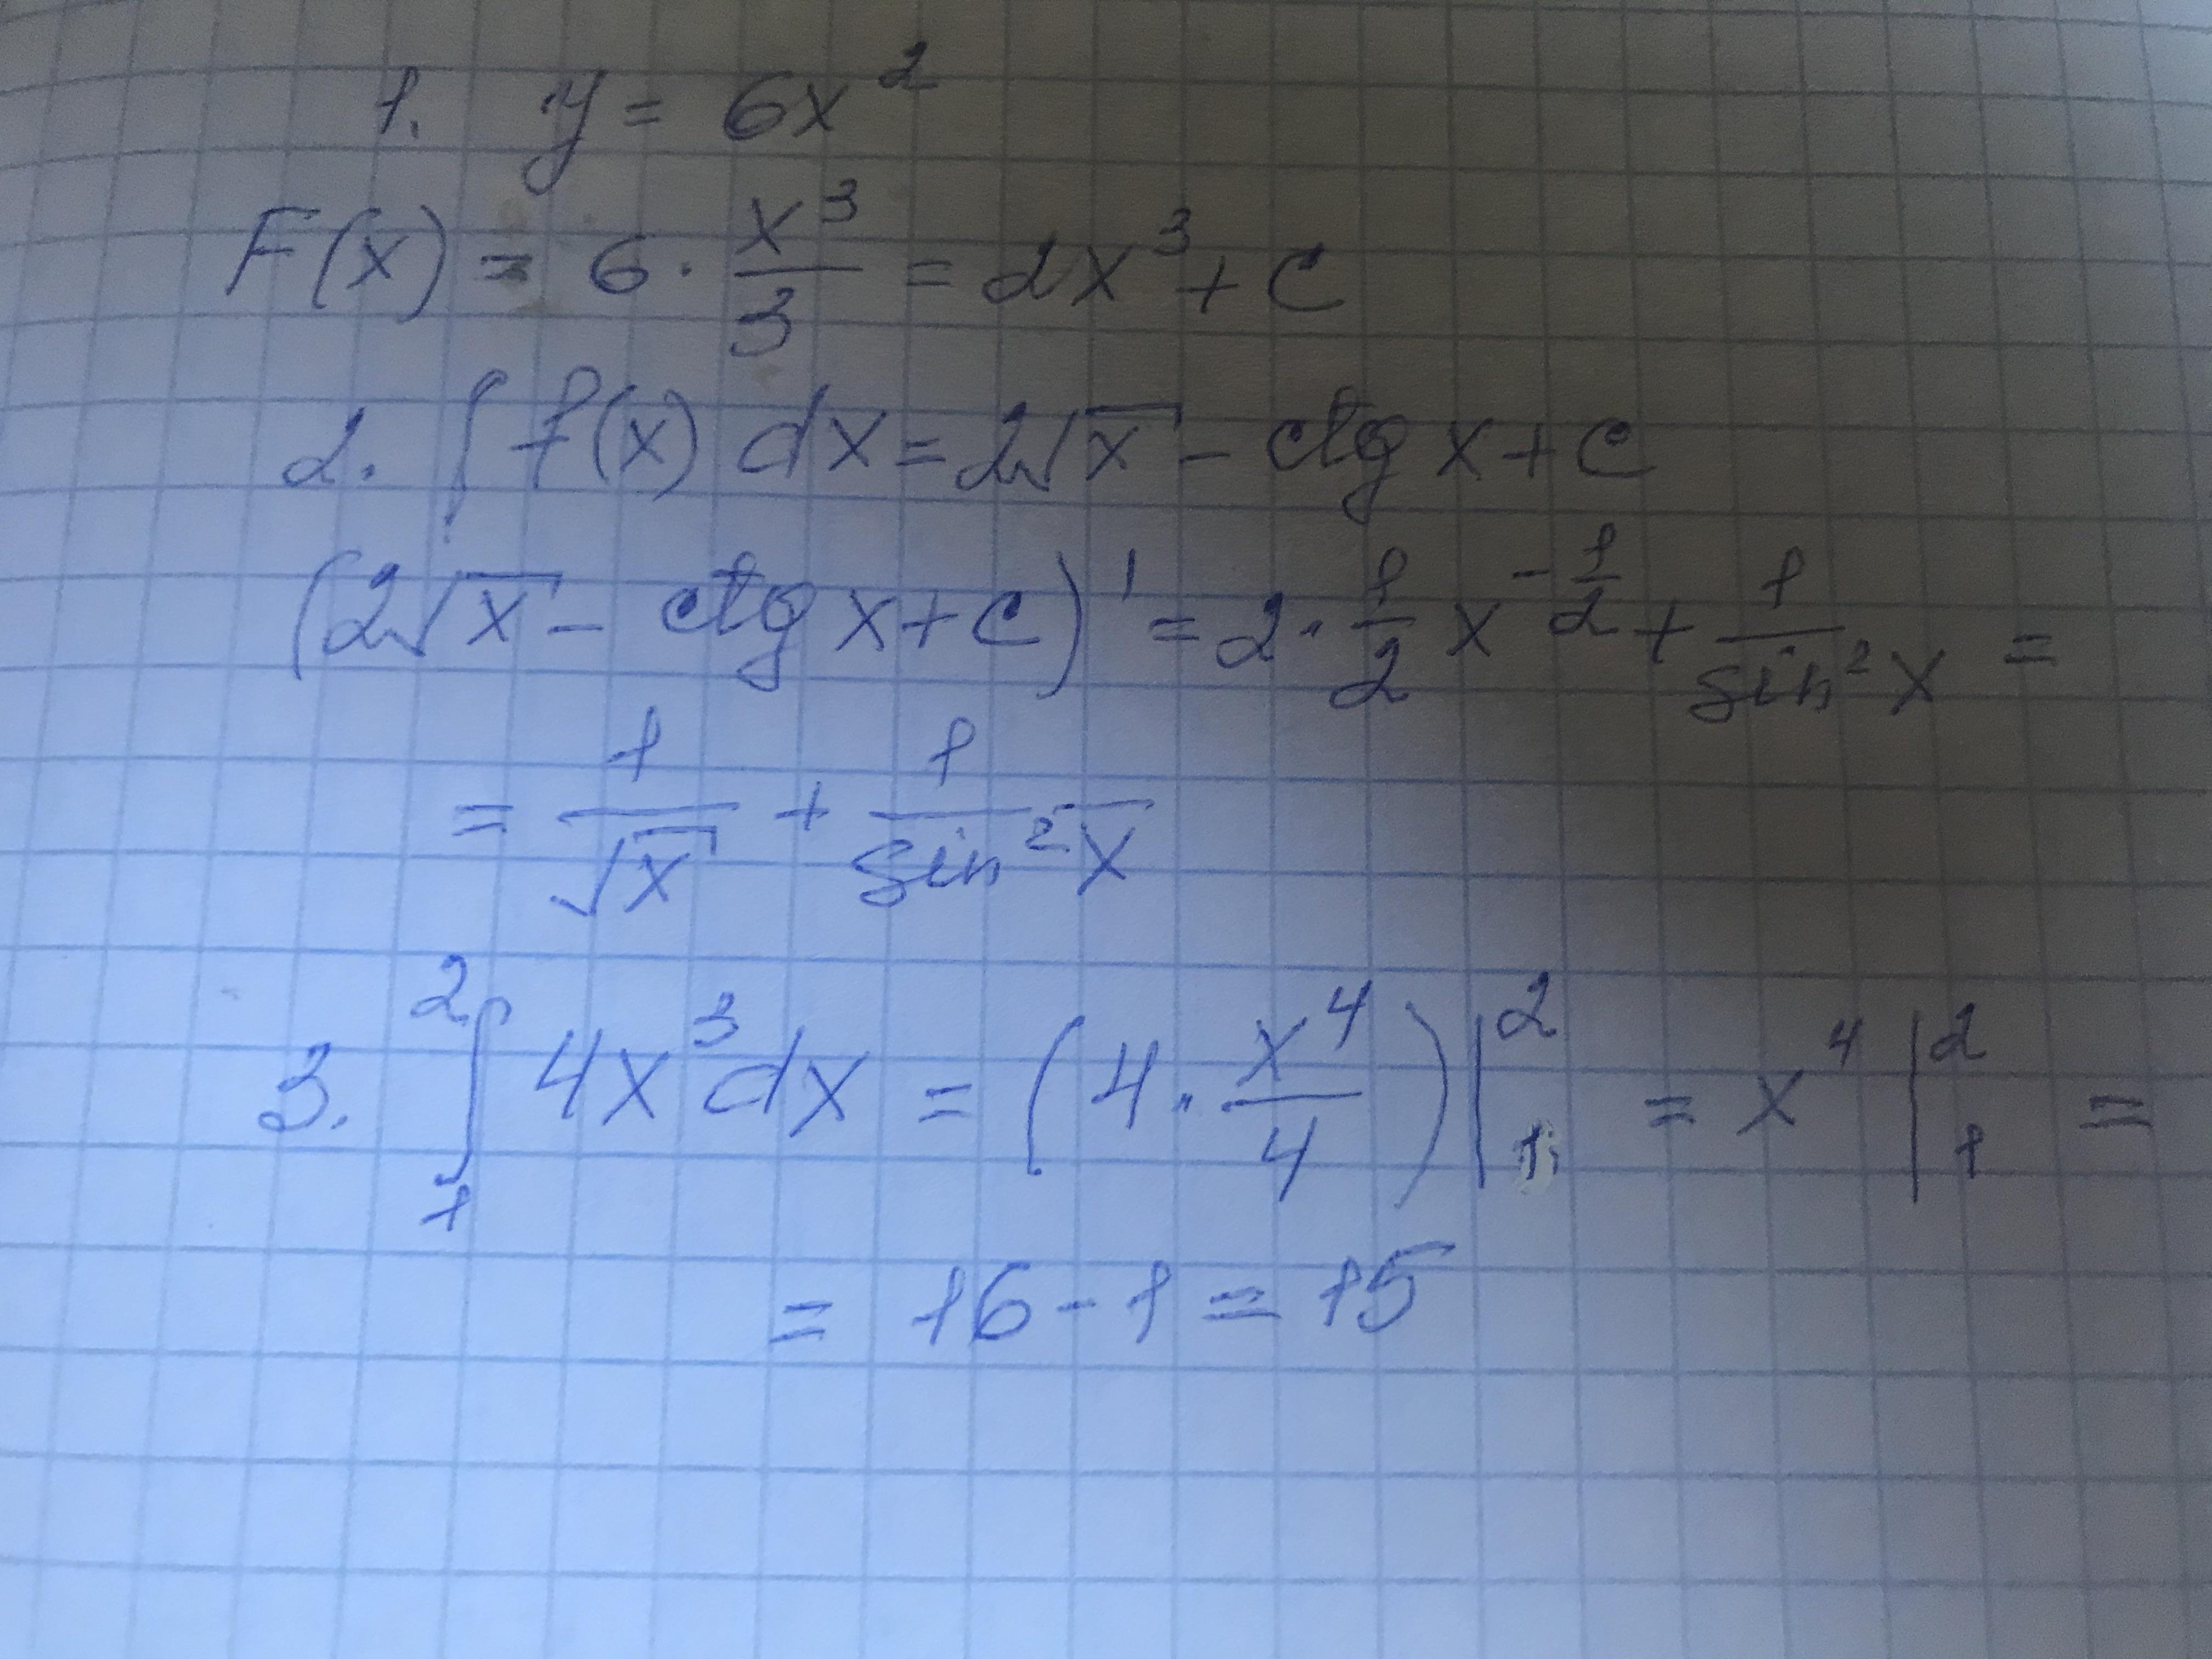 1. y = 6x²
F(x) = 6 · x³/3 = 2x³ + C
2. ∫ f(x) dx = 2√x - ctg x + C
(2√x - ctg x + C)' = 2 · 1/2 x^(-1/2) + 1/sin²x =
= 1/√x + 1/sin²x
3. ∫₁² 4x³dx = (4 · x⁴/4)|₁² = x⁴|₁² =
= 16 - 1 = 15